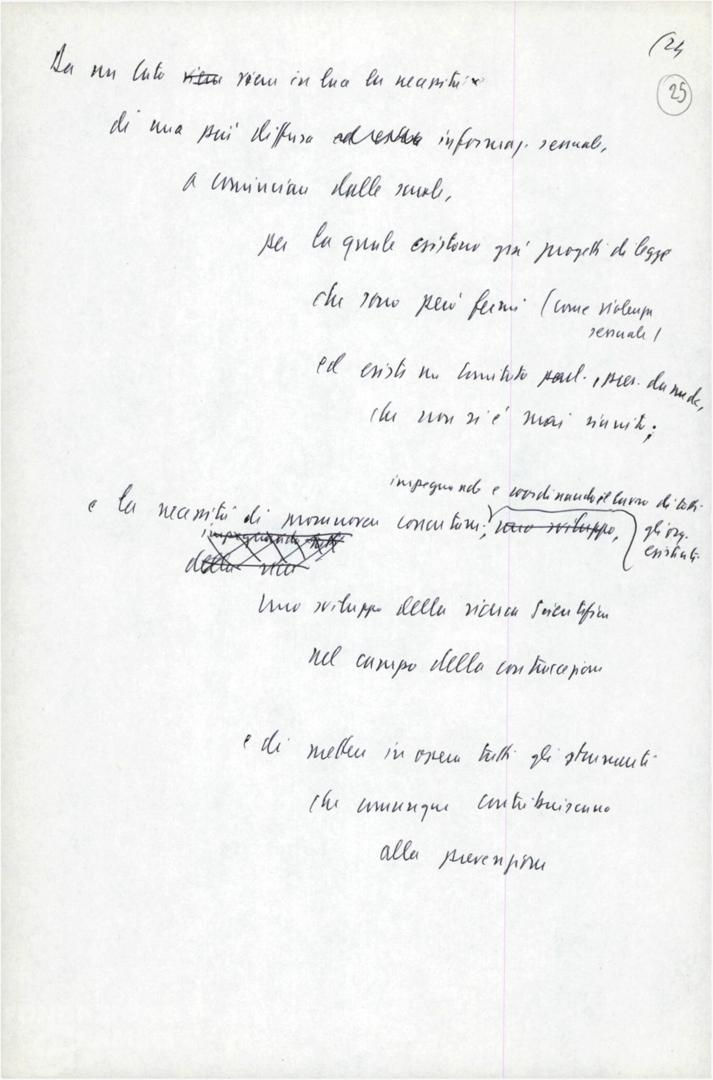 (24
25
Da un lato viene viene in luce la necessità
di una più diffusa informaz. sessuale,
a cominciare dalle scuole,
per la quale esistono già progetti di legge
che sono però fermi (come violenza
sessuale)
ed esiste un Comitato
che non si è mai riunito;
impegnando e coordinando il lavoro di tutti
e la necessità di promuovere uno sviluppo,
gli org.
esistenti
impegnando tutti
della
uno sviluppo della ricerca scientifica
nel campo della contraccezione
e di mettere in opera tutti gli strumenti
che comunque contribuiscano
alla prevenzione